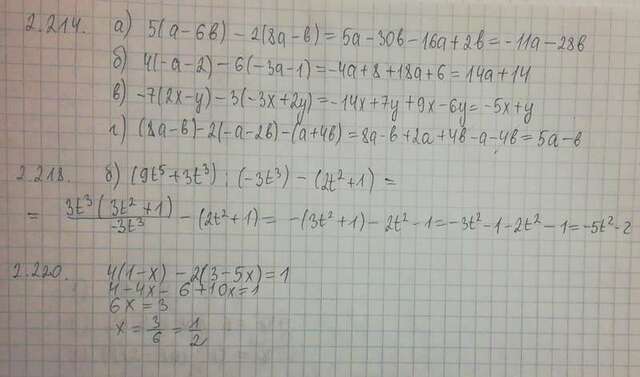 2.214. а) 5(a-6b) - 2(8a-b) = 5a-30b-16a+2b = -11a-28b
б) 4(-a-2) - 6(-3a-1) = -4a+8+18a+6 = 14a+14
в) -7(2x-y) - 3(-3x+2y) = -14x+7y+9x-6y = -5x+y
г) (8a-b) - 2(-a-2b) - (a+4b) = 8a-b+2a+4b-a-4b = 5a-b
2.218. б) (9t⁵+3t³) : (-3t³) - (2t²+1) =
= 3t³(3t²+1)/-3t³ - (2t²+1) = -(3t²+1) - 2t² - 1 = -3t²-1-2t²-1 = -5t²-2
2.220. 4(1-x) - 2(3-5x) = 1
4-4x-6+10x=1
6x=3
x = 3/6 = 1/2